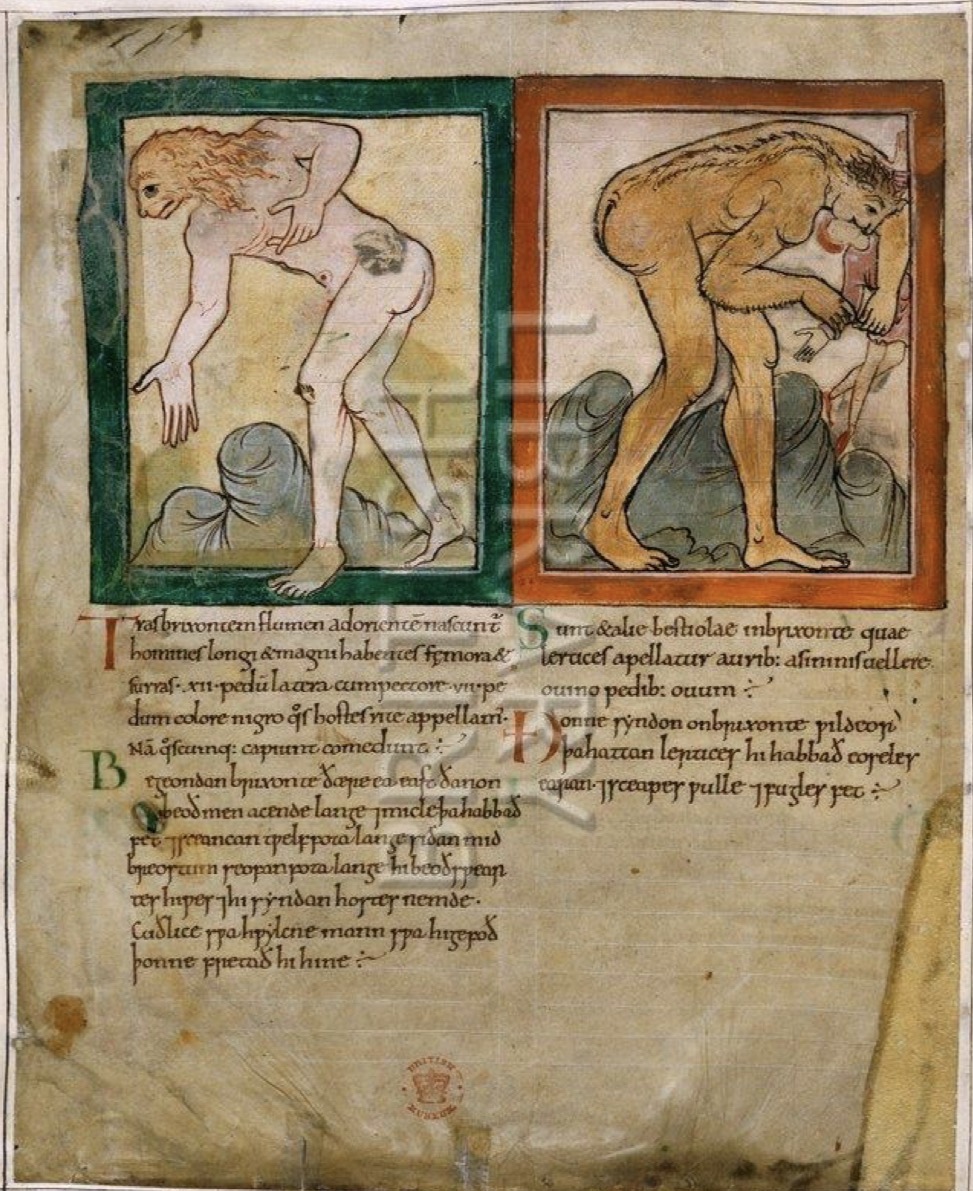 Trasbrixontem flumen adoriente nascunt̄
homines longi & magni habentes fęmora &
surras·xii·pedū latera cum pectore·vii·pe
dum colore nigro q̄s hostes rite appellam̄·
Nā q̄scumq: capiunt comedunt :~
Begeondan brixonte ðære ea east ðanon
beoð men acende lange ⁊ micle þa habbað
fet ⁊ sceancan tƿelf fota lange sidan mid
breostum seofan fota lange hi beoð sƿear
tes hiƿes ⁊ hi syndan hostes nemde·
Cuðlice sƿa hƿylcne mann sƿa hi gefoð
þonne fretað hi hine :~
Sunt & alie bestiolae inbrixonte quae
lertices apellatur aurib: asininis uellere
ouino pedib: ouum :~
Ðonne syndon onbrixonte ƿildeor
þa hattan lertices hi habbað eoseles
earan ⁊ sceapes ƿulle ⁊ fugles fet :~
BRITISH MUSEUM
BRITISH LIBRARY